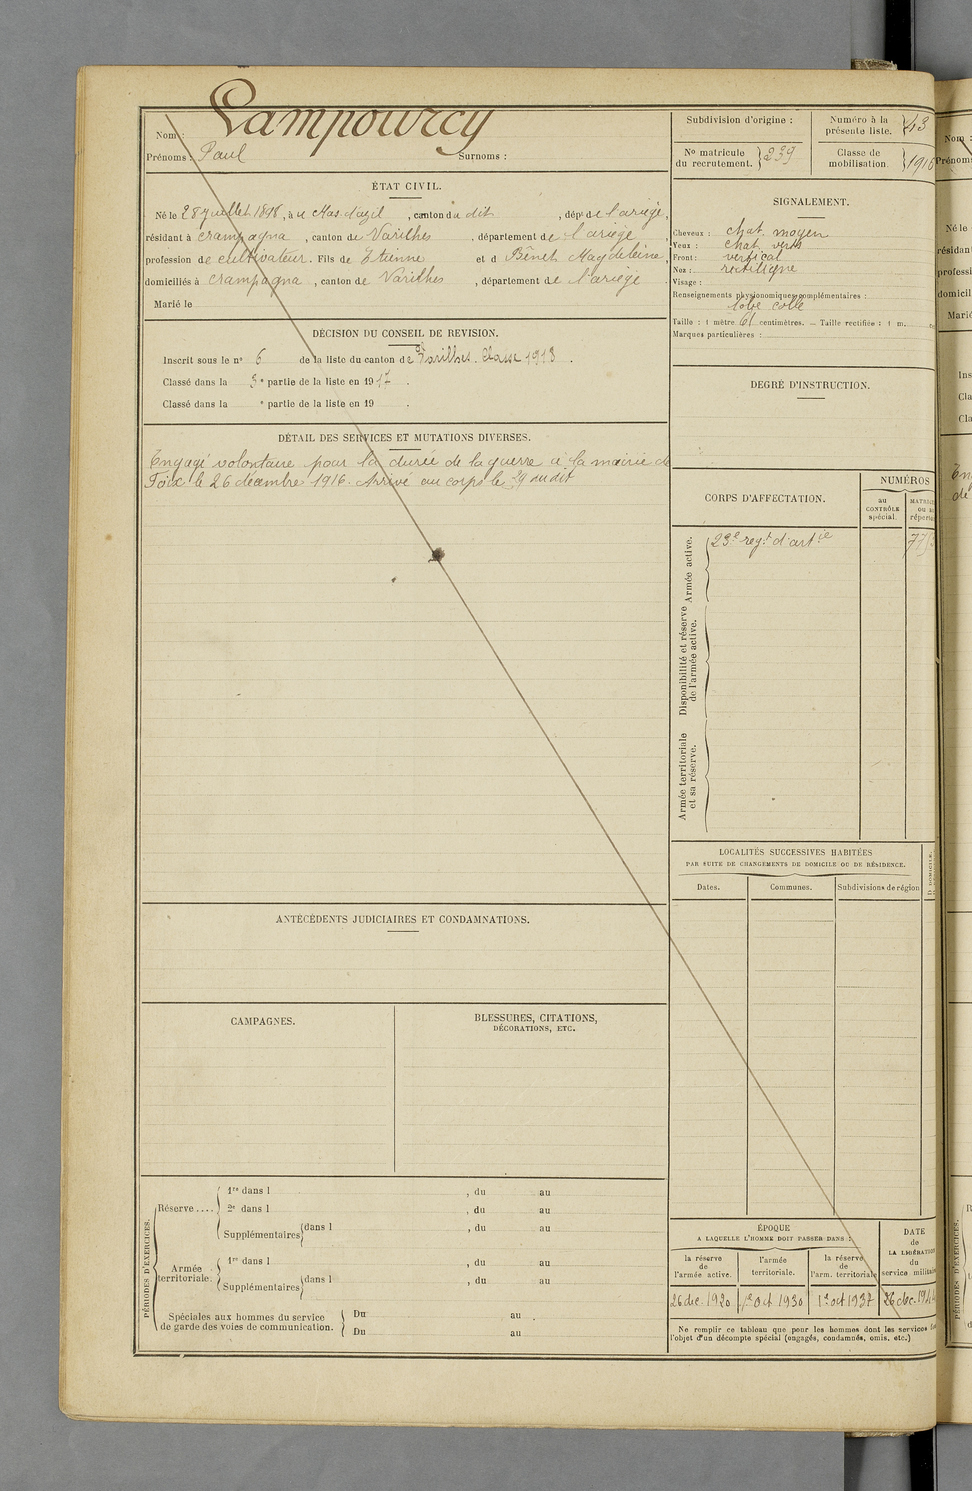 Nom : Lampourcy
Prénoms : Paul Surnoms :
ÉTAT CIVIL.
Né le 28 juillet 1898, à u Mas d'azil, canton du dit, dépt de l'ariège,
résidant à crampagna, canton de Varilhes, département de l'ariège
profession de cultivateur. Fils de Etienne et d Bénet Magdeleine,
domiciliés à crampagna, canton de Varilhes, département de l'ariège.
Marié le
DÉCISION DU CONSEIL DE REVISION.
Inscrit sous le n° 6 de la liste du canton de Varilhes. Classe 1918.
Classé dans la 3e partie de la liste en 1917.
Classé dans la e partie de la liste en 19 .
DÉTAIL DES SERVICES ET MUTATIONS DIVERSES.
Engagé volontaire pour la durée de la guerre à la mairie de
Foix le 26 décembre 1916. Arrivé au corps le 29 dudit
ANTÉCÉDENTS JUDICIAIRES ET CONDAMNATIONS.
CAMPAGNES.
BLESSURES, CITATIONS,
DÉCORATIONS, ETC.
PÉRIODES D'EXERCICES.
Réserve....
1re dans l , du au
2e dans l , du au
Supplémentaires dans l , du au
Armée
territoriale.
1re dans l , du au
Supplémentaires dans l , du au
Spéciales aux hommes du service
de garde des voies de communication.
Du au .
Du au
Subdivision d'origine :
Numéro à la
présente liste. 43
No matricule
du recrutement. 239
Classe de
mobilisation. 1916
SIGNALEMENT.
Cheveux : chat. moyen
Yeux : chat. verts
Front : vertical
Nez : rectiligne
Visage :
Renseignements physionomiques complémentaires :
lobe collé
Taille : 1 mètre 61 centimètres. — Taille rectifiée : 1 m.
Marques particulières :
DEGRÉ D'INSTRUCTION.
CORPS D'AFFECTATION.
NUMÉROS
au
CONTRÔLE
spécial.
Armée active.
23e regt d'artie
Disponibilité et réserve
de l'armée active.
Armée territoriale
et sa réserve.
LOCALITÉS SUCCESSIVES HABITÉES
PAR SUITE DE CHANGEMENTS DE DOMICILE OU DE RÉSIDENCE.
Dates. Communes. Subdivisions de région
ÉPOQUE
A LAQUELLE L'HOMME DOIT PASSER DANS :
la réserve
de
l'armée active.
l'armée
territoriale.
la réserve
de
l'arm. territoriale
DATE
de
LA LIBÉRATION
du
service militaire
26 dec. 1920 1er Oct 1930 1er oct 1937 26 dec.
Ne remplir ce tableau que pour les hommes dont les services
l'objet d'un décompte spécial (engagés, condamnés, omis, etc.)